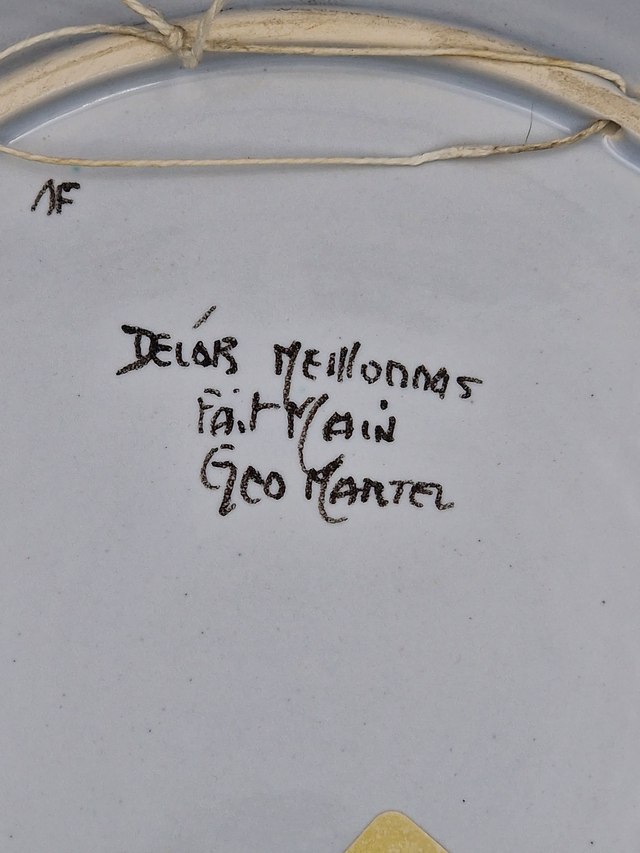 AF
DÉCOR MEIllONNAS
FAit MAIN
GEO MARTEL